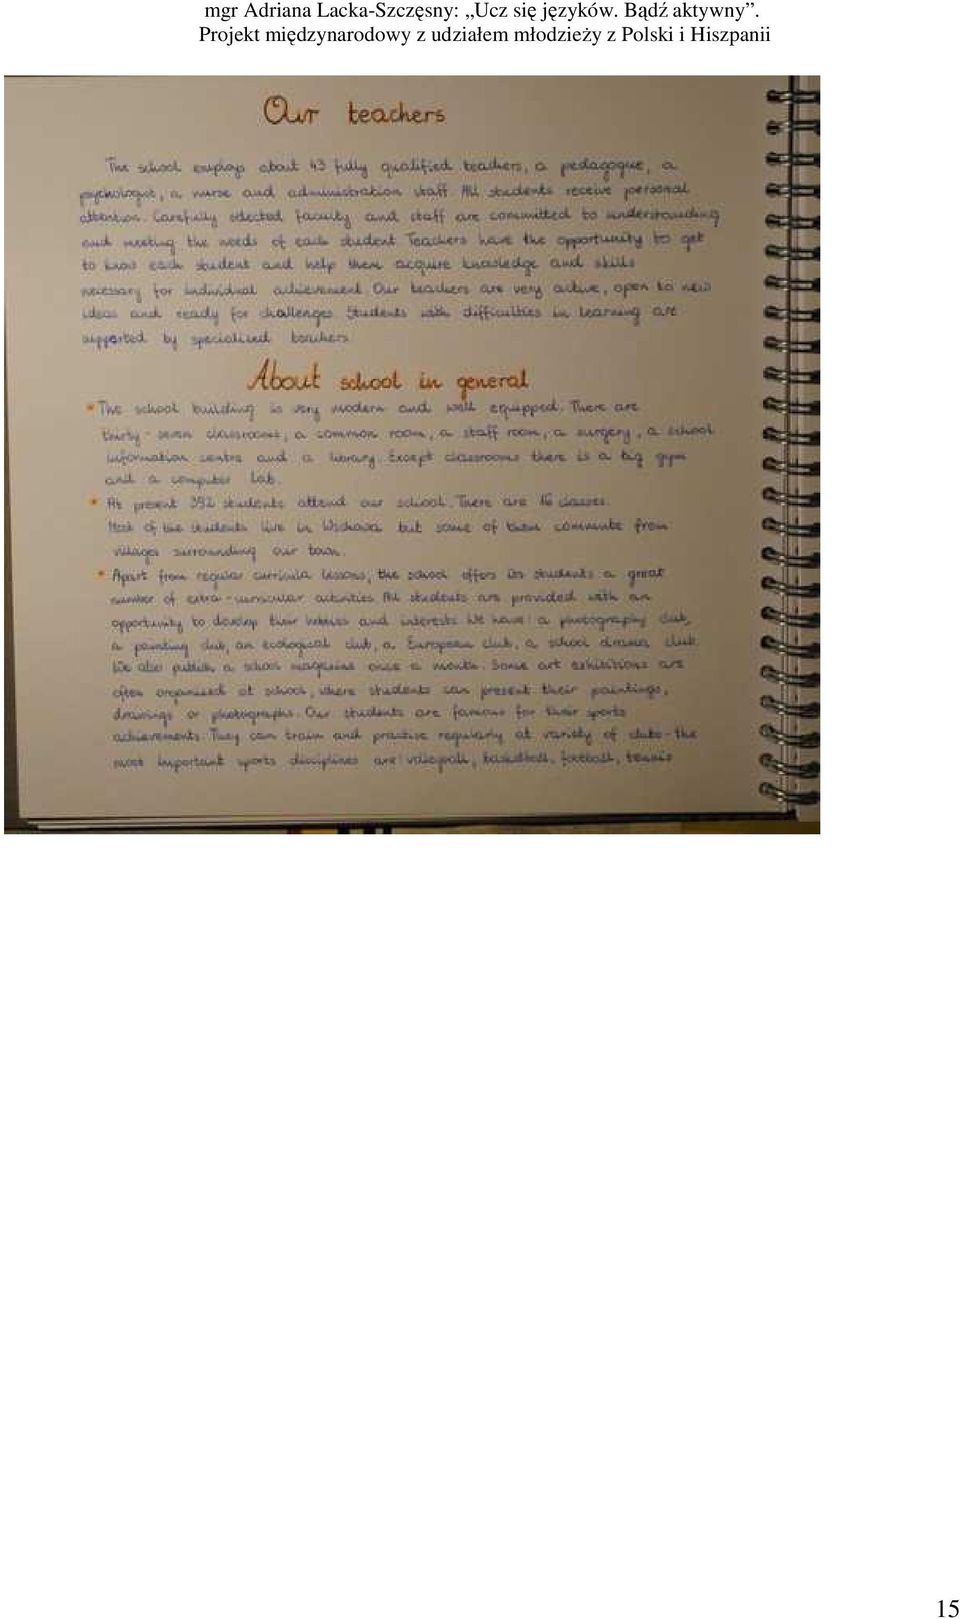 mgr Adriana Lacka-Szczęsny: „Ucz się języków. Bądź aktywny”.
Projekt międzynarodowy z udziałem młodzieży z Polski i Hiszpanii
Our teachers
The school employs about 43 fully qualified teachers, a pedagogue, a
psychologist, a nurse and administration staff. All students receive personal
attention. Carefully selected faculty and staff are committed to understanding
and meeting the needs of each student Teachers have the opportunity to get
to know each student and help them acquire knowledge and skills
necessary for individual achievement. Our teachers are very active, open to new
ideas and ready for challenges. Students with difficulties in learning are
supported by specialised teachers.
About school in general
* The school building is very modern and well equipped. There are
thirty-seven classrooms, a common room, a staff room, a surgery, a school
information centre and a library. Except classrooms there is a big gym
and a computer lab.
* At present 392 students attend our school. There are 16 classes.
Most of the students live in Wschowa but some of them commute from
villages surrounding our town.
* Apart from regular curricula lessons, the school offers its students a great
number of extra-curricular activities. All students are provided with an
opportunity to develop their hobbies and interests. We have: a photography club,
a painting club, an ecological club, a European club, a school drama club.
We also publish a school magazine once a month. Some art exhibitions are
often organised at school, where students can present their paintings,
drawings or photographs. Our students are famous for their sports
achievements. They can train and practise regularly at variety of clubs - the
most important sports disciplines are: volleyball, basketball, football, tennis
15